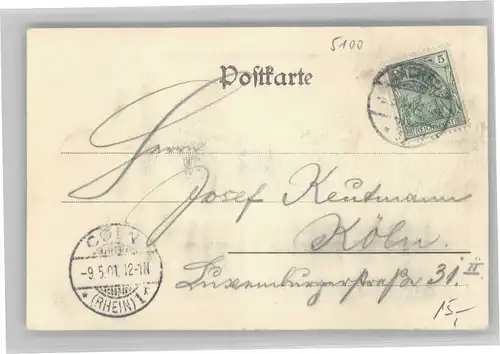 5100
Postkarte
5
Herrn
Josef Keutmann
Köln.
Luxemburgerstraße 31. II
CÖLN
-9.5.01. 12-1N
* (RHEIN) 1 r
15,-